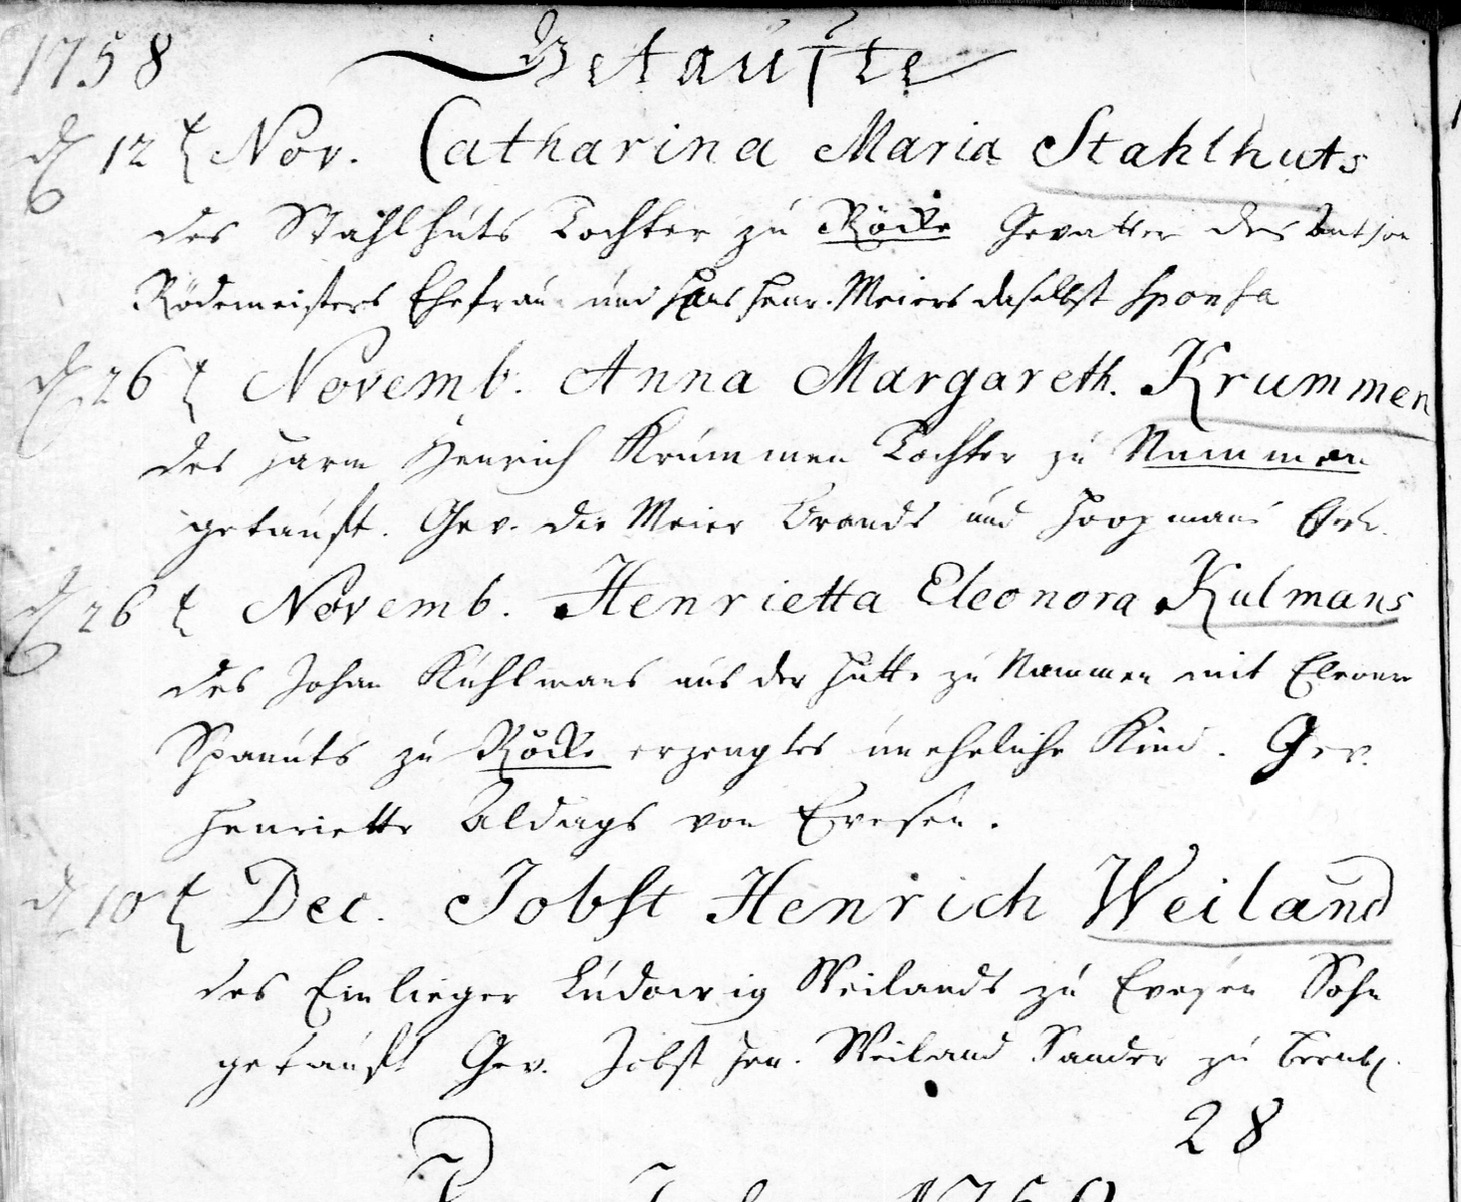 1758 Getaufte
d 12 t Nov. Catharina Maria Stahlhuts
des Stahlhuts Tochter zu Röcke Gevatter des
Rödemeisters Ehefrau und Hans Henr. Meiers daselbst sponsa
d 26 t Novemb. Anna Margareth. Krummen
des Harm Henrich Krummen Tochter zu Nammen
getauft. Gev. die Meier Brands und Hoopmans
d 26 t Novemb. Henrietta Eleonora Kulmans
des Johan Kuhlmans aus der Hütte zu Nammen mit Eleonora
Spanuts zu Röcke erzeugtes uneheliche Kind. Gev.
Henriette Aldags von Evesen.
d 10 t Dec. Jobst Henrich Weiland
des Einlieger Ludowig Weilands zu Evesen Sohn
getauft Gev. Jobst Hen. Weiland Sander zu
28